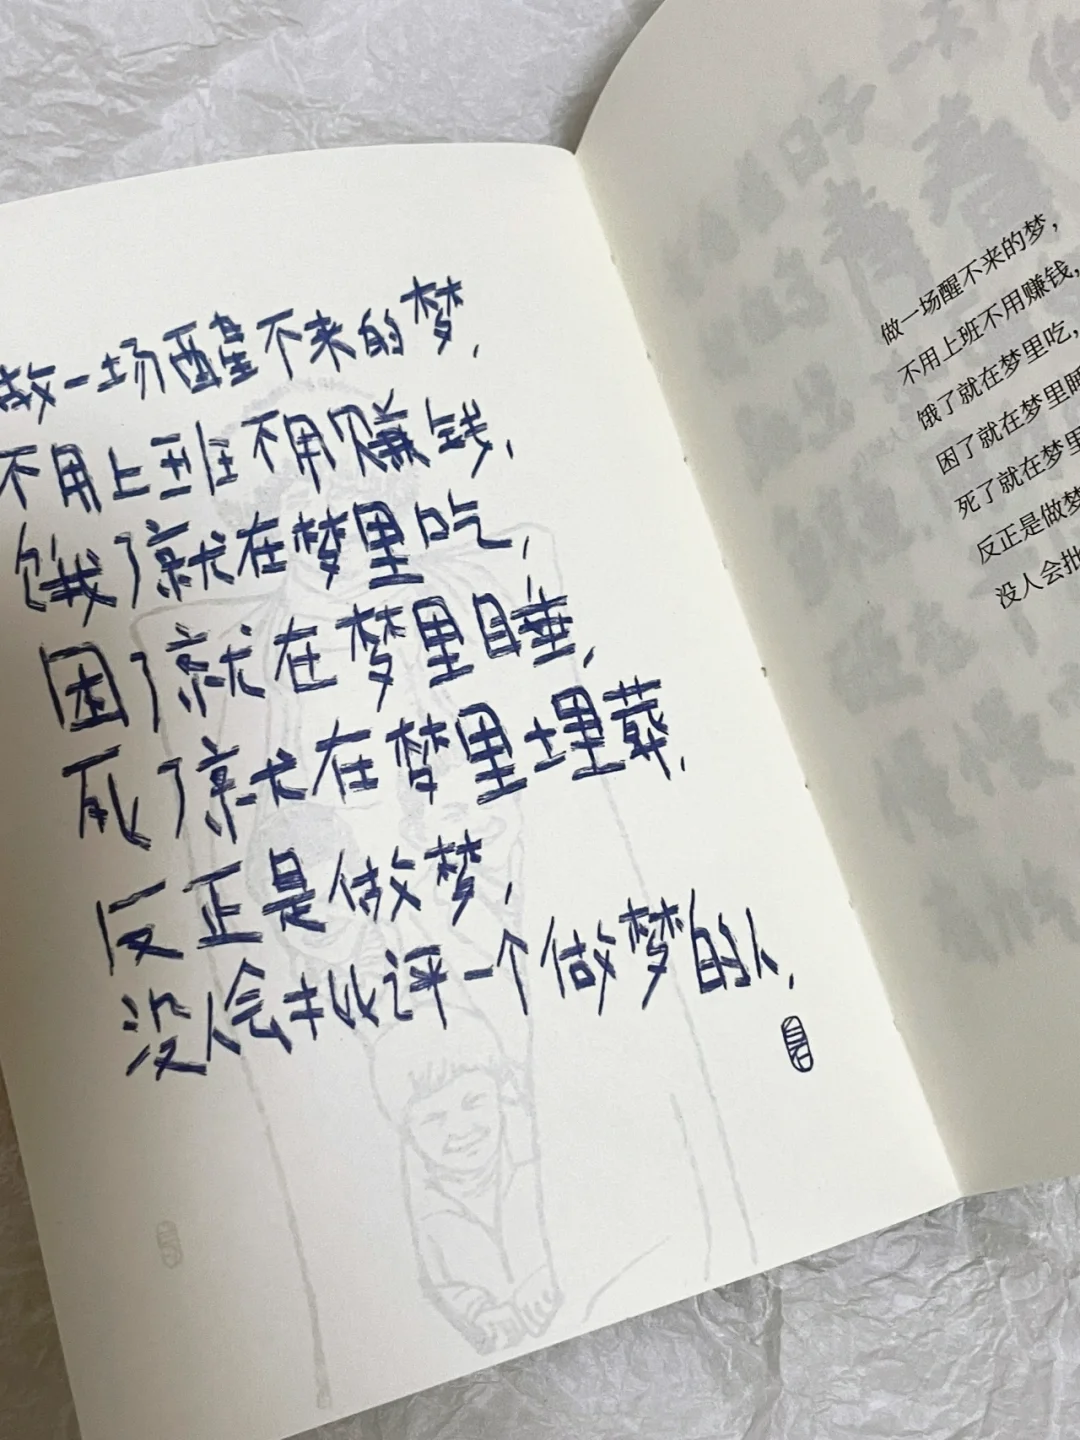 做一场醒不来的梦,
不用上班不用赚钱,
饿了就在梦里吃,
困了就在梦里睡,
死了就在梦里埋葬,
反正是做梦,
没人会批评一个做梦的人,
做一场醒不来的梦，
不用上班不用赚钱，
饿了就在梦里吃，
困了就在梦里睡
死了就在梦里
反正是做梦
没人会批